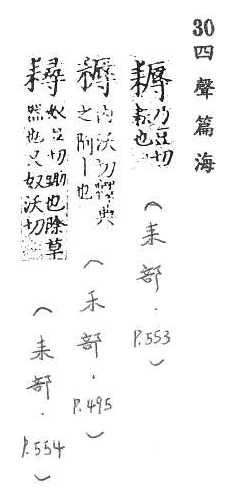 30四聲篇海
耨乃豆切耘也(耒部.P.553)
䅶內沃切釋典之阿丨也(禾部.P.495)
奴豆切鋤也除草然也又奴沃切(耒部.P.554)